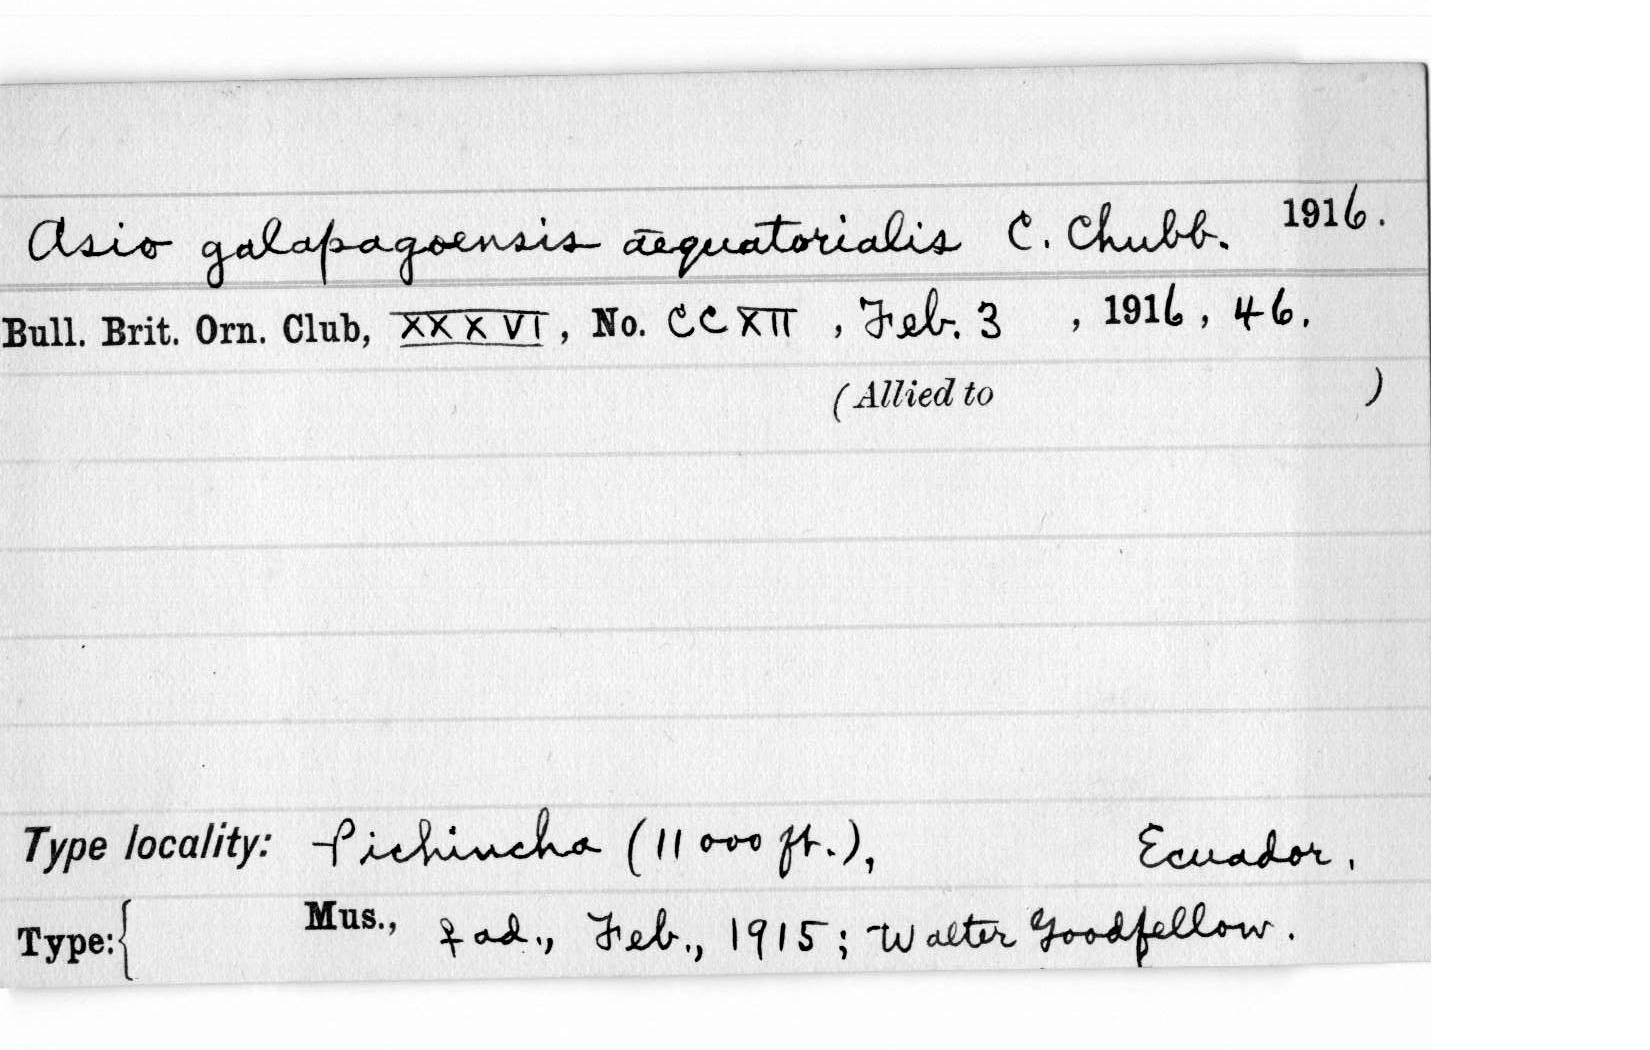 Asio galapagoensis æquatorialis C. Chubb. 1916.
Bull. Brit. Orn. Club, XXXVI, No. CCXII, Feb. 3, 1916, 46.
(Allied to )
Type locality: Pichincha (11000 ft.), Ecuador.
Type:{ Mus., ♀ ad., Feb., 1915; Walter Goodfellow.